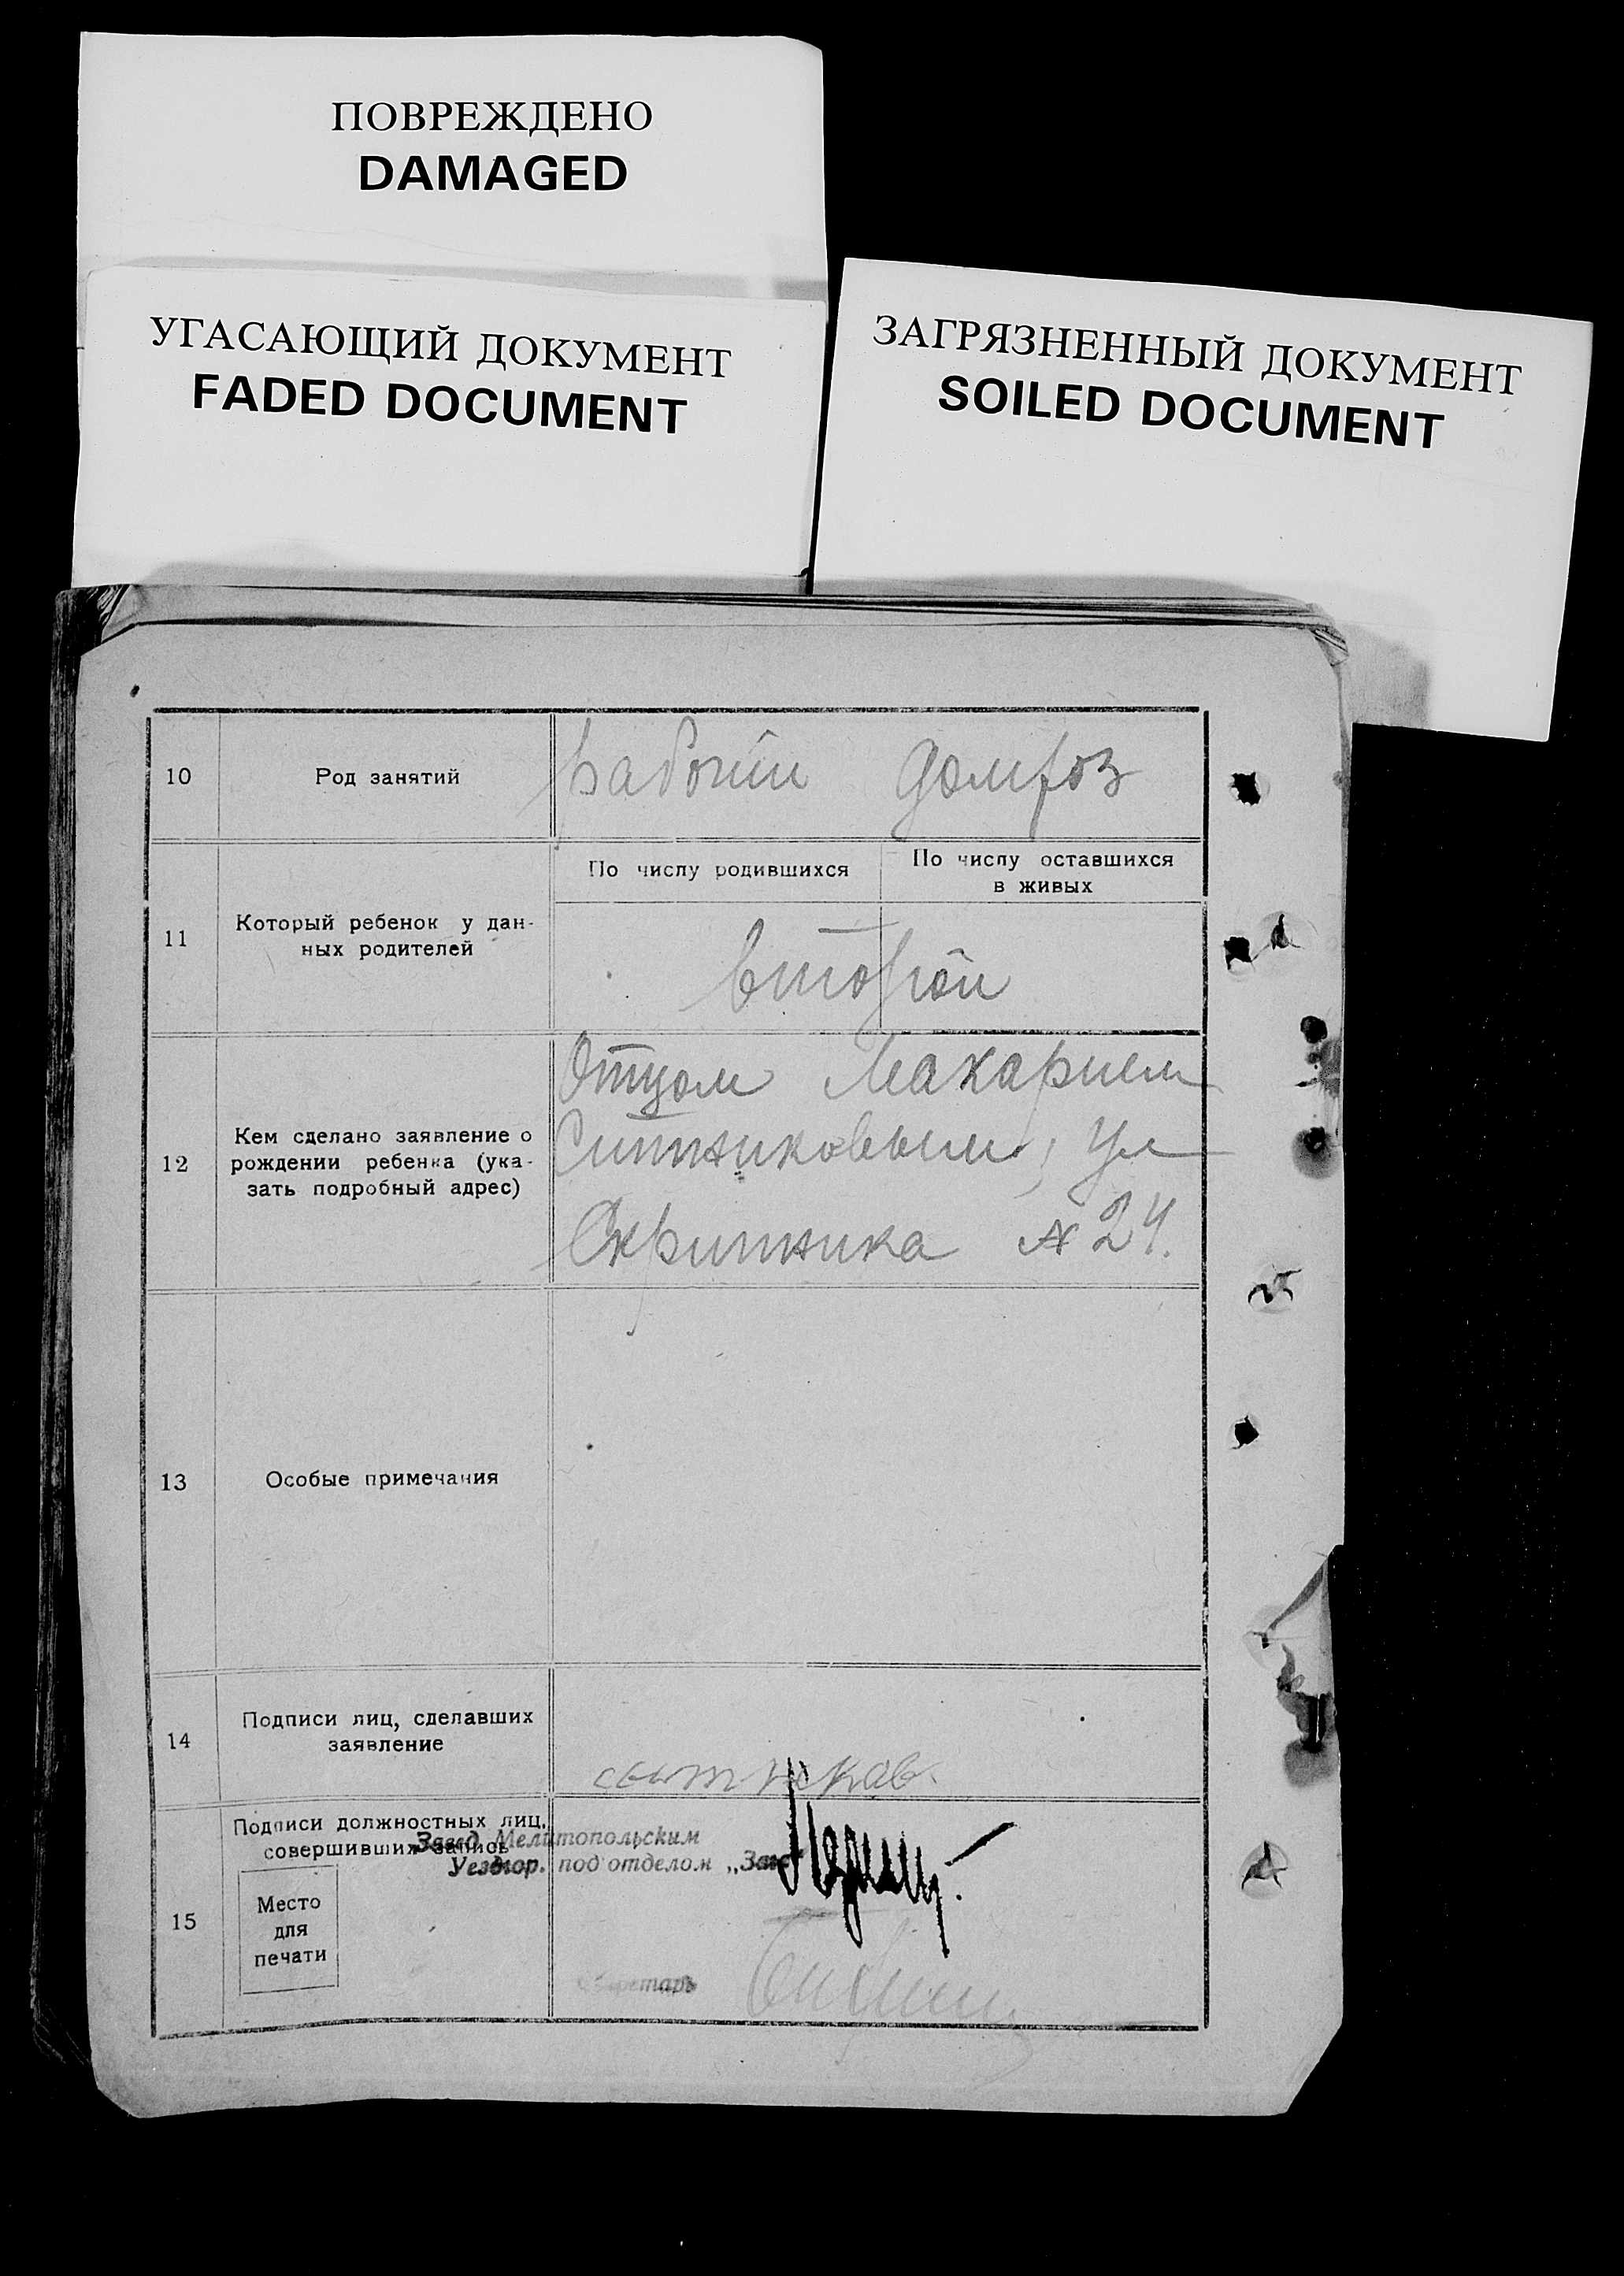 ПОВРЕЖДЕНО
DAMAGED
УГАСАЮЩИЙ ДОКУМЕНТ
FADED DOCUMENT
ЗАГРЯЗНЕННЫЙ ДОКУМЕНТ
SOILED DOCUMENT
10 Род занятий рабочий домхоз
11 Который ребенок у дан-
ных родителей
По числу родившихся
По числу оставшихся
в живых
второй
12 Кем сделано заявление о
рождении ребенка (ука-
зать подробный адрес)
Отцом Макарием
Ситниковым, ул
Скрипника № 24.
13 Особые примечания
14 Подписи лиц, сделавших
заявление
15 Подписи должностных лиц,
совершивших запись
Завед. Мелитопольским
Уездгор. подотделом „Загс"
Место
для
печати
Секретарь